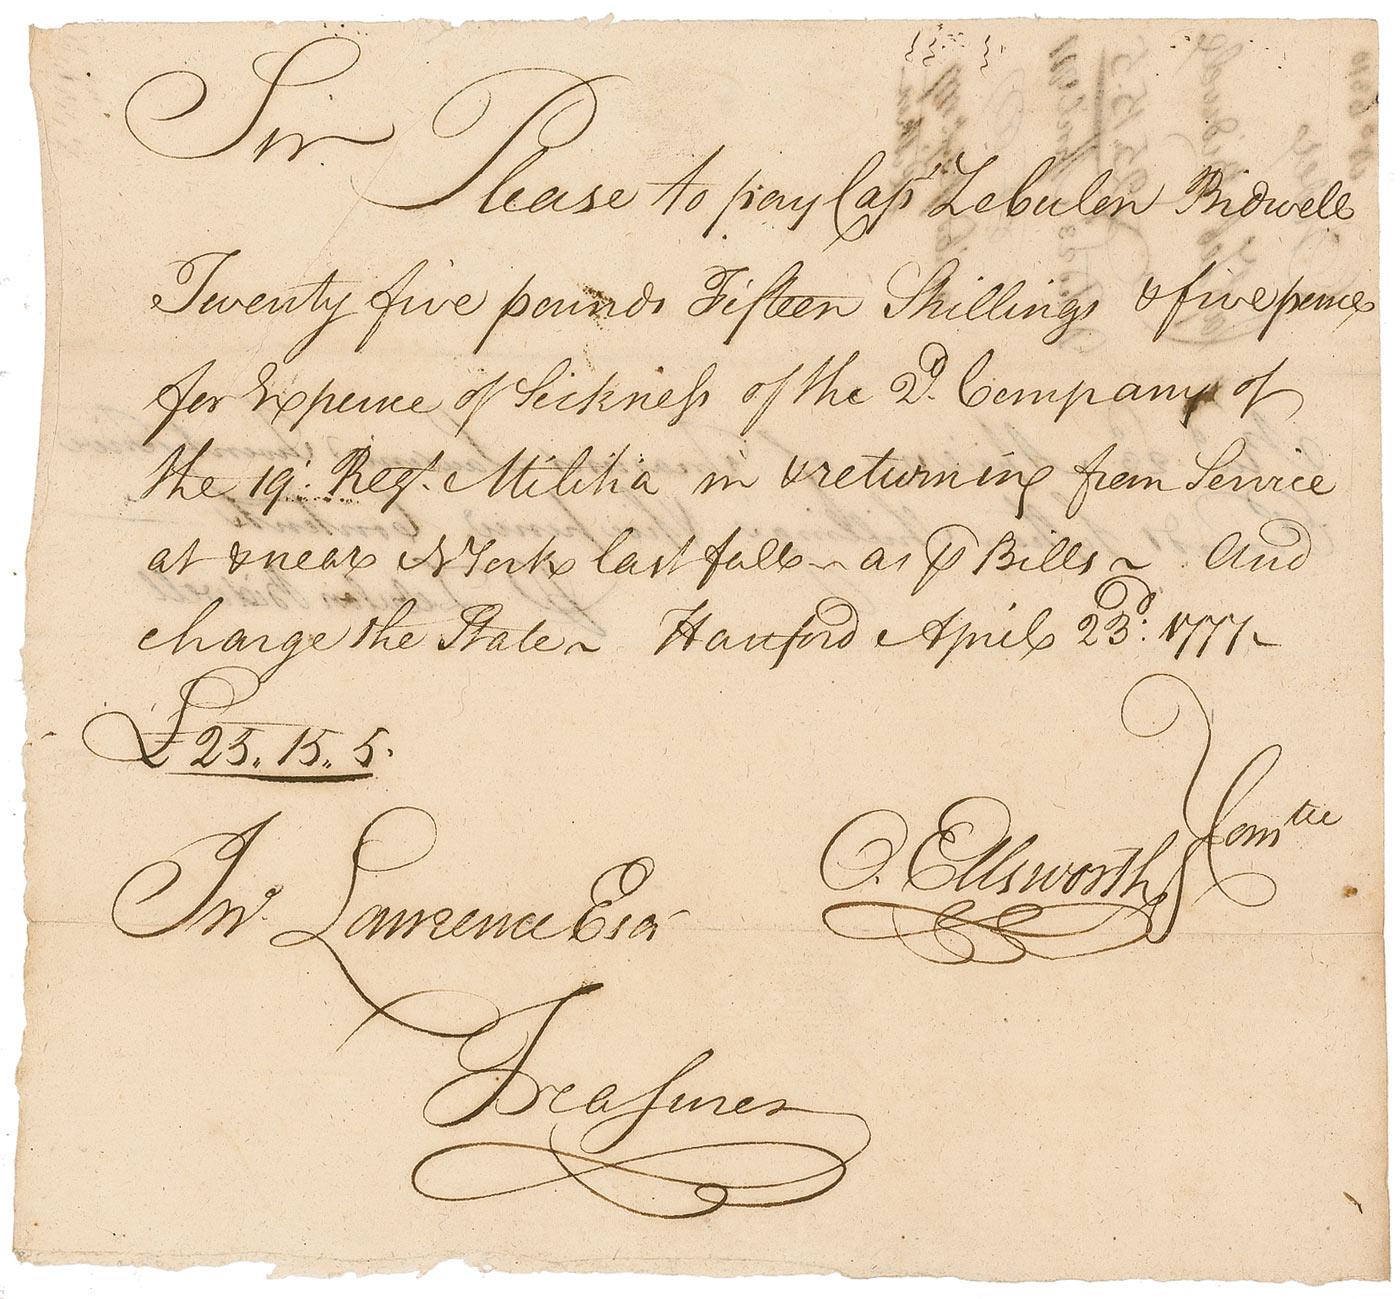 Sir
Please to pay Capt Zebulen Bidwell
Twenty five pounds Fifteen Shillings & five pence
for Expence of Sickness of the 2d. Company of
the 19t. Regt. Militia in & returning from Service
at & near N York last fall ~ as ⅌ Bills ~ And
charge the State ~ Hartford April 23d. 1777 ~
£ 25,, 15,, 5.
O. Ellsworth } Comtee
Jno. Lawrence Esqr
Treasurer